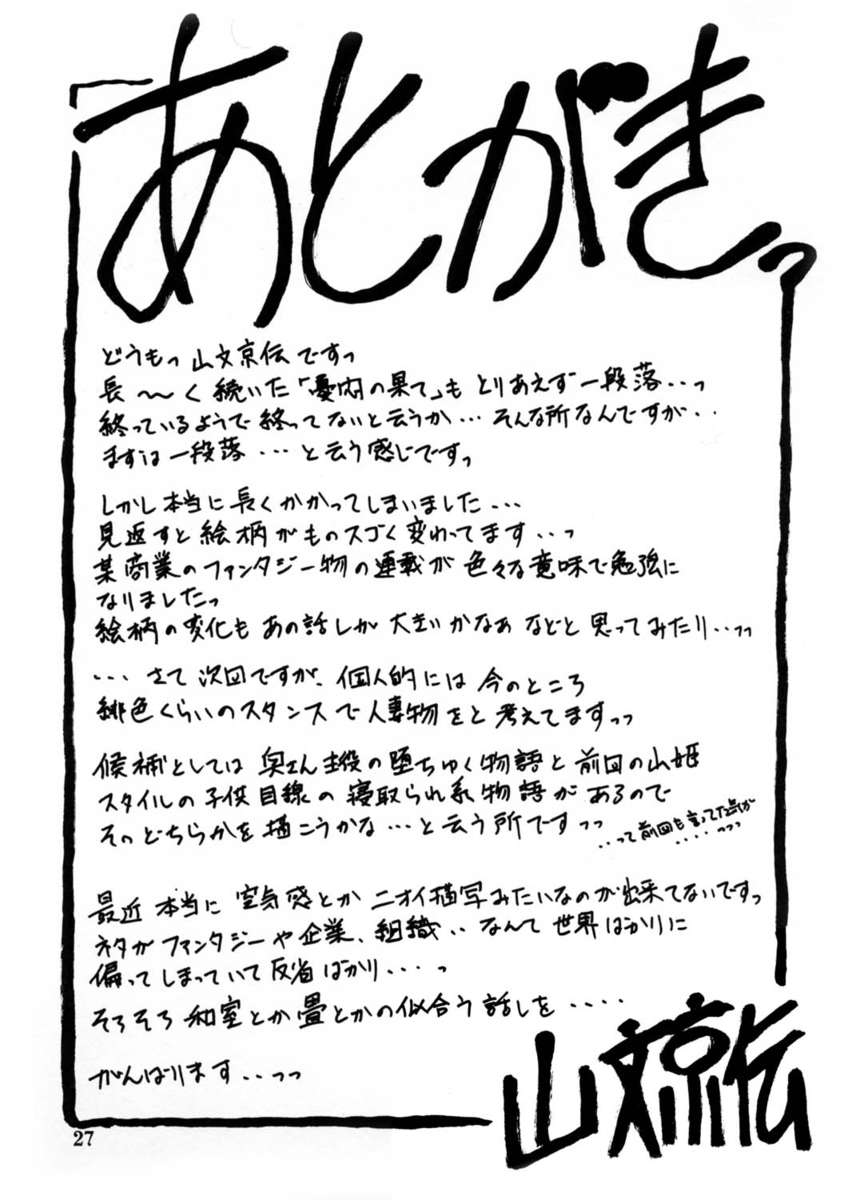 あとがきっ
どうもっ 山文京伝ですっ
長～く続いた「憂内の果て」も とりあえず一段落‥っ
終っているようで終ってないと云うか… そんな所なんですが‥
まずは一段落…と云う感じですっ
しかし本当に長くかかってしまいました…
見返すと絵柄がものスゴく変わってます‥っ
某商業のファンタジー物の連載が色々な意味で勉強に
なりましたっ
絵柄の変化も あの話しが 大きいかなぁ などと 思ってみたり‥っっ
… さて 次回ですが、個人的には 今のところ
緋色くらいのスタンスで人妻物をと 考えてますっっ
候補としては 奥さん主役の堕ちゆく物語と 前回の山姫
スタイルの子供目線の寝取られ系物語があるので
そのどちらかを描こうかな…と云う所ですっっ
‥って前回も言ってた気が
‥‥っっっ
最近 本当に 空気感とか ニオイ描写みたいなのが出来てないですっ
ネタがファンタジーや企業、組織‥ なんて 世界ばかりに
偏ってしまっていて反省ばかり‥‥っ
そろそろ 和室とか畳とかの似合う話しを ‥‥
がんばります‥っっ
山文京伝
27